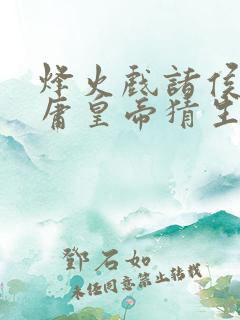 烽火戏諸侯
庸皇帝猜生
鄧石如
未经同意禁止转载